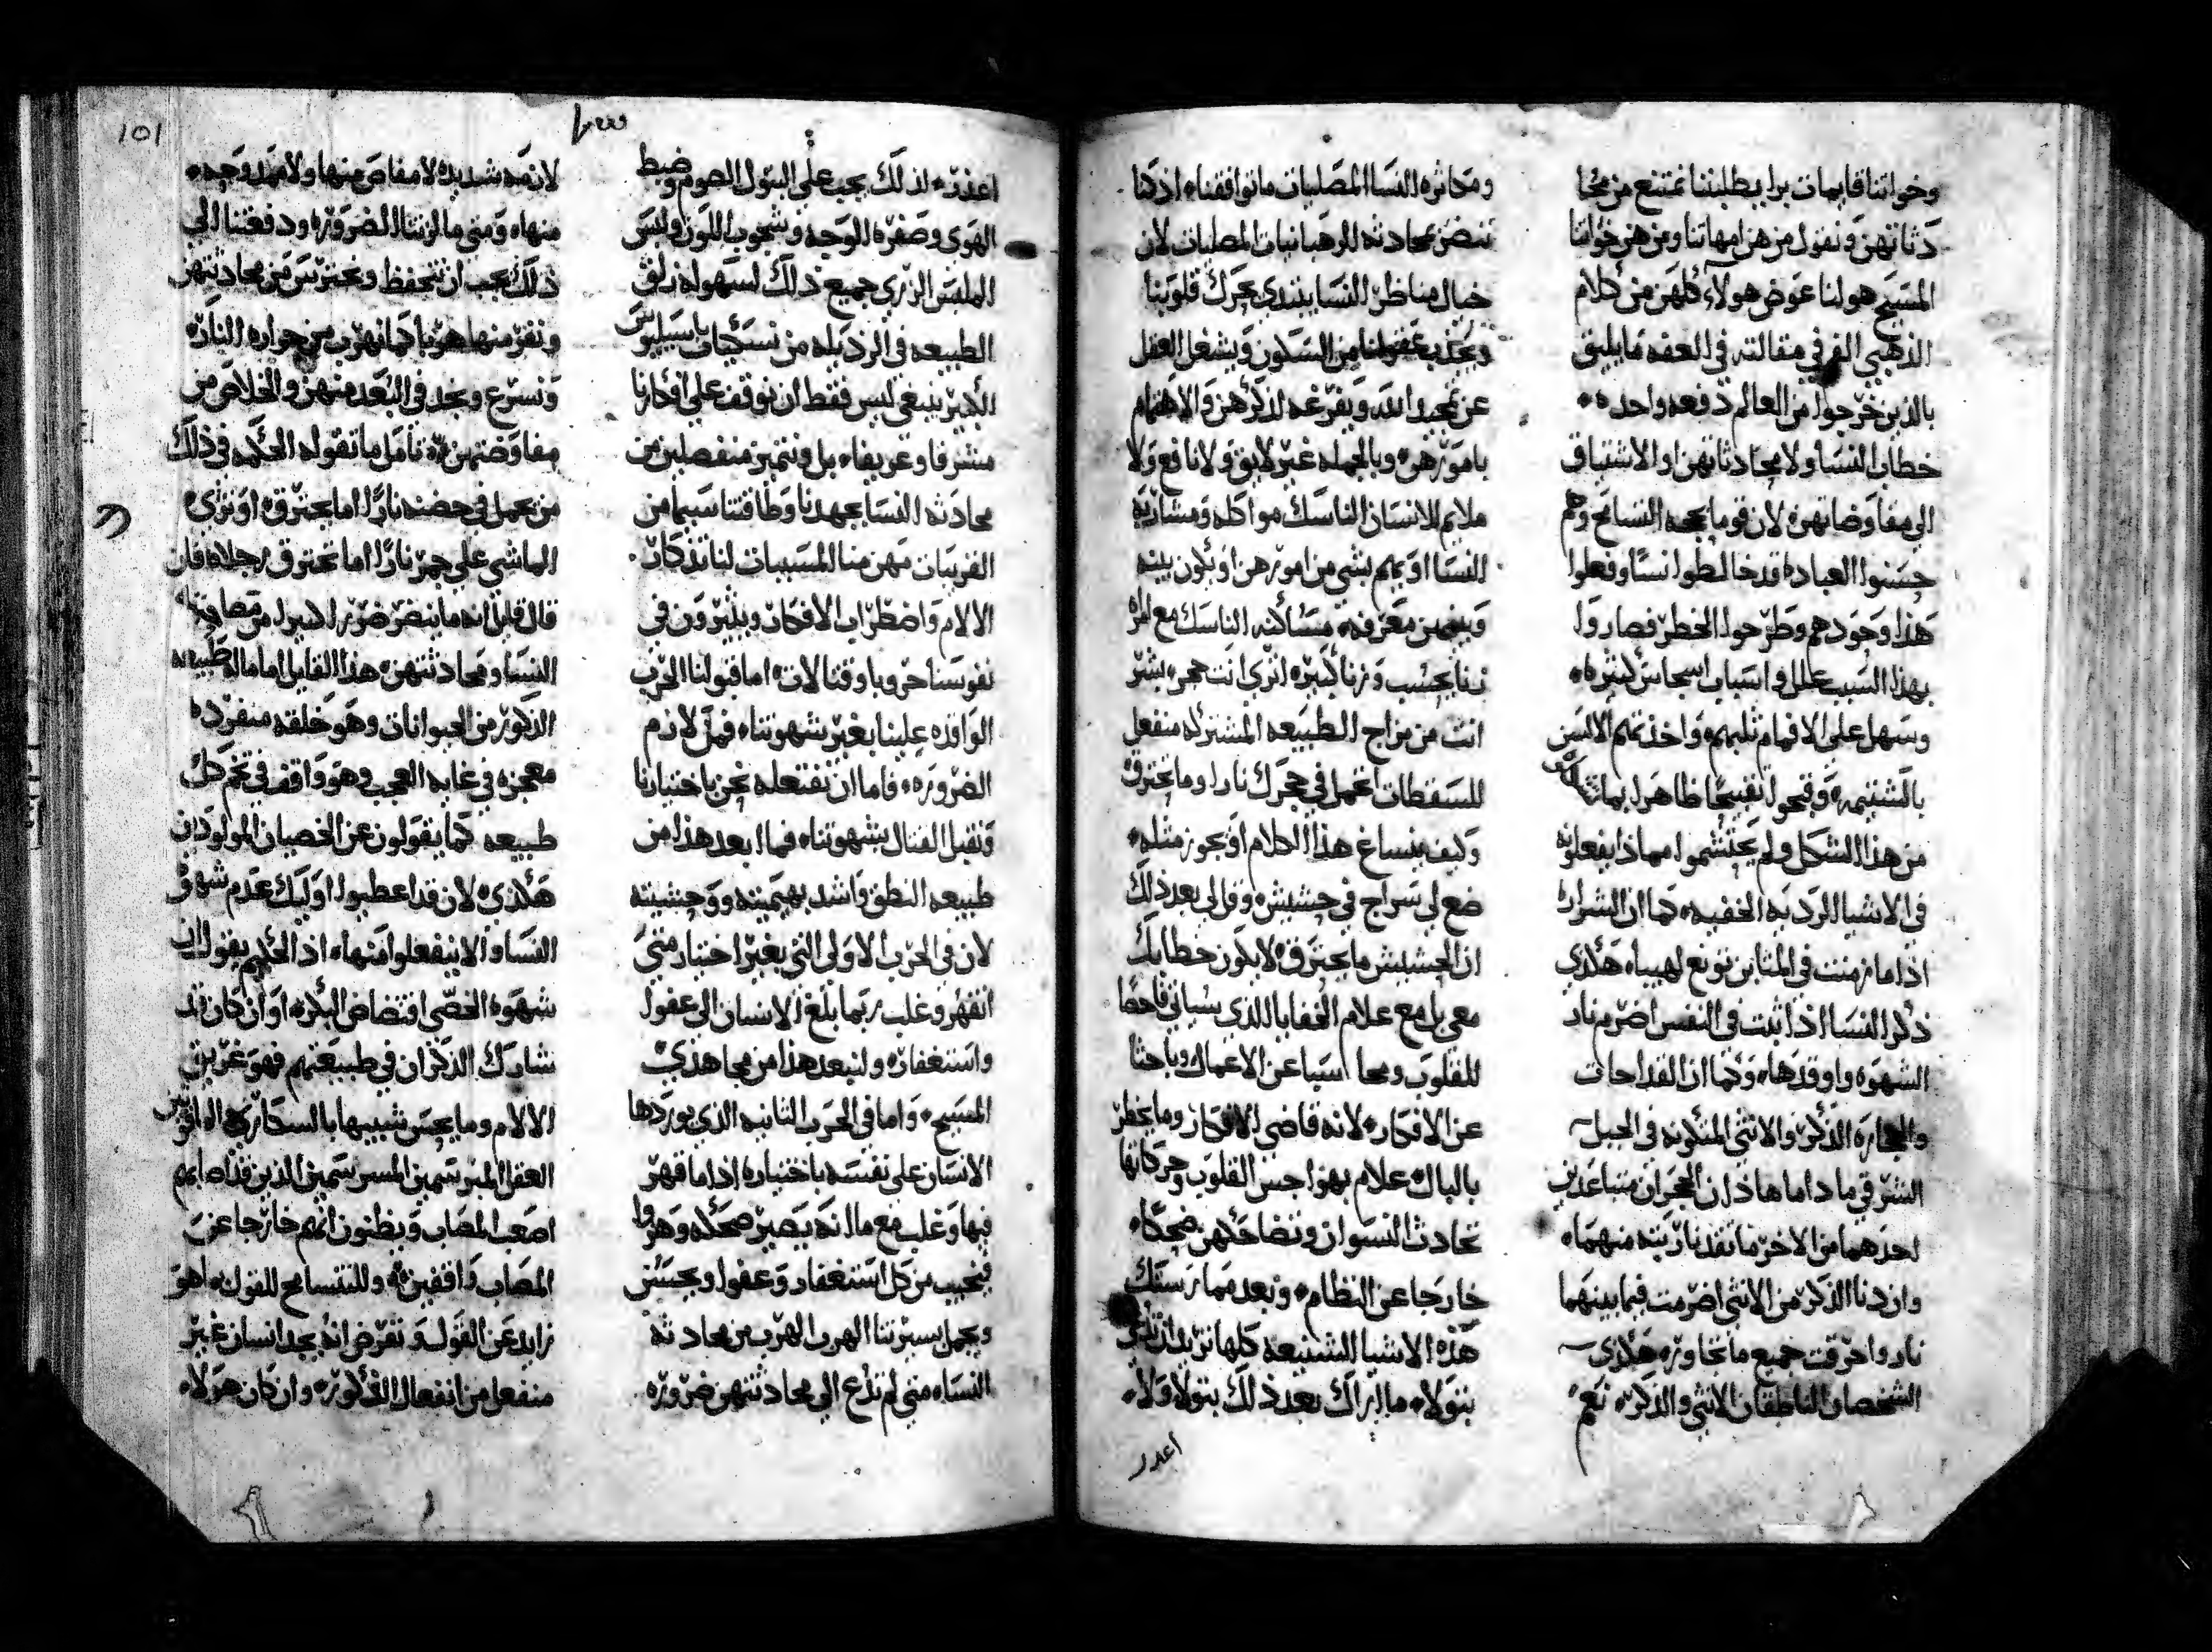 وخواتنا قايمات برا يطلبننا نمتنع من محا
دثاتهن ونقول من هن امهاتنا ومن هن خواتنا
المسيح هو لنا عوض هولاء كلهن من كلام
الذهبي الفم في مقالته في العفه ما يليق
بالذين خرجوا من العالم دفعه واحده
خطاب النسا ولا محادثاتهن او الاشتياق
الي مفاوضاتهن لان قوما بحجه التسامح وهم
حسنوا العباده قد خالطوا نسا وفعلوا
هذا وحودهم وطرحوا الخطر فصاروا
بهذا السبب علل واسباب اسجاس كثيره
وسهل علي الافهام ثلبهم واخذ تلم الالسن
بالشتيمه وقبحوا تقبيحا ظاهرا بما
من هذا الشكل ولم يحتشموا مهما ذا يفعلونه
في الاشيا الرديه الخفيه كما ان الشراره
اذا ما زمنت في التبن توقع لهيبا هكذي
ذكر النسا اذا ثبت في النفس اضرم نار
الشهوه واوقدها وكما ان القداحات
والحجاره الذكر والانثي المتكونه في الجبل
الشرقي ما داما هاذان الحجران متباعدين
احدهما من الاخر ما تقد نار بته منهما
وان دنا الذكر من الانثي اضرمت فيما بينهما
نار واحرقت جميع ما تجاوره هكذي
الشخصان الناطقان الانثي والذكر نعم
ومكاثره النسا المصليات ما توافقنا اذ كنا
نتضر بمحادثه الرهبانيات المصليات لان
خيال مناظر النسا يبتدي يحرك قلوبنا
ويجذب عقولنا من السكون ويشغل العقل
عن تمجيد الله ويفرغه لذكرهن والاهتمام
بامورهن وبالجمله غير لايق ولا نافع ولا
ملايم للانسان الناسك مواكله ومشاربه
النسا او يهتم بشي من امورهن او يكون بينه
وبينهن معرفه مساكنه الناسك مع امراه
زنا يحسب وزنا كبيره اتري انت حجر بشر
انت من مزاج الطبيعه المشتركه منفعل
للسقطات اتحمل في حجرك نارا وما تحترق
وكيف ينساغ هذا الكلام او يجوز مثله
ضع لي سراج في حشيش وقل لي بعد ذلك
ان الحشيش ما يحترق لا يكون خطابك
معي بل مع علام الخفايا الذي سياتي فاحصا
للقلوب ومحاسبا عن الاعمال وباحثا
عن الافكار لانه قاضي الافكار وما يخطر
بالبال علام بهواجس القلوب وحركاتها
تحادث النسوان وتضاحكهن ضحكا
خارجا عن النظام وبعد ممارستك
هذه الاشيا الشنيعه كلها تريد ان تدعي
بتولا ما اراك بعد ذلك بتولا ولا
اعدر
اعدر لذلك يجب علي البتول الصوم وضبط
الهوي وصفره الوجه وشحوب اللون ولبس
الملبس الزري جميع ذلك لسهوله زلق
الطبيعه في الرذيله من نسكيات باسيليوس
الكبير ينبغي ليس فقط ان نوقف علي افكارنا
مشرفا وعريفا بل ونتميز منفصلين من
محادثه النسا بجهدنا وطاقتنا سيما من
القريبات مهن منا المسببات لنا تذكار
الالام واضطراب الافكار ويثيرون في
نفوسنا حروبا وقتالات اما قبولنا الحرب
الوافده علينا بغير شهوتنا فهي لازم
الضروره فاما ان نفتعله نحن باختيارنا
ونقبل القتال بشهوتنا فما ابعد هذا من
طبيعه النطق واشد بهيميته ووحشيته
لان في الحرب الاولي التي بغير اختيار متي
انقهر وغلب ربما بلغ الانسان الي عفو
واستغفار وليبعد هذا من مجاهدي
المسيح واما في الحرب الثانيه الذي يوردها
الانسان علي نفسه باختياره اذا ما قهر
فيها وغلب مع ما انه يصير ضحكه وهزوا
فيخيب من كل استغفار وعفو ويحسن
ويجمل بسيرتنا الهرب الهرب من محادثه
النسا متي لم تدع الي محادثتهن ضروره
لازمه شديده لا مفاص منها ولا مهد وجه
منها ومتي ما لزمتنا الضروره ودفعتنا الي
ذلك يجب ان نتحفظ ونحترس من محادثتهن
ونفر منها هربا كما نهرب من حواره النار
ونسرع ونجد في البعد منهن والخلاص من
مفاوضتهن تامل ما تقوله الحكمه في ذلك
من يحمل في حضنه نارا اما يحترق او تري
الماشي علي جمر نارا اما تحترق رجلاه فان
قال قايل انه ما يتضر ضررا كبيرا من مصاوته
النسا ومحادثتهن هذا القايل اما ماله طبيعه
الذكور من الحيوانات وهو خلقه منفرده
معجزه في غايه العجب وهو واقف في تخم كل
طبيعه كما يقولون عن الخصيان المولودين
هكذي لان قد اعطبوا اوليك عدم شهوه
النسا والا ينفعلوا منها اذ الحكيم يقول ان
شهوه الخصي افتضاض البكر او ان كان قد
شارك الذكران في طبيعتهم فهو غريق
الالام وما يحس شبيها بالسكاري الواقفين
العقل المبرسمين الذين قد اصابهم
اصعب المصاب ويظنون انهم خارجا عن
المصاب واقفين ولنتسامح للقول اهو
زايد عن القول ونفرض انه يجد انسان غير
منفعل من انفعال الذكوره وان كان هولا
101